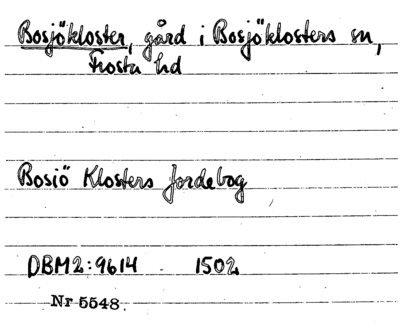 Bosjökloster, gård i Bosjöklosters sn,
Frosta hd
Bosiö Klosters Jordebog
DBM2:9614 1502
Nr 5548.